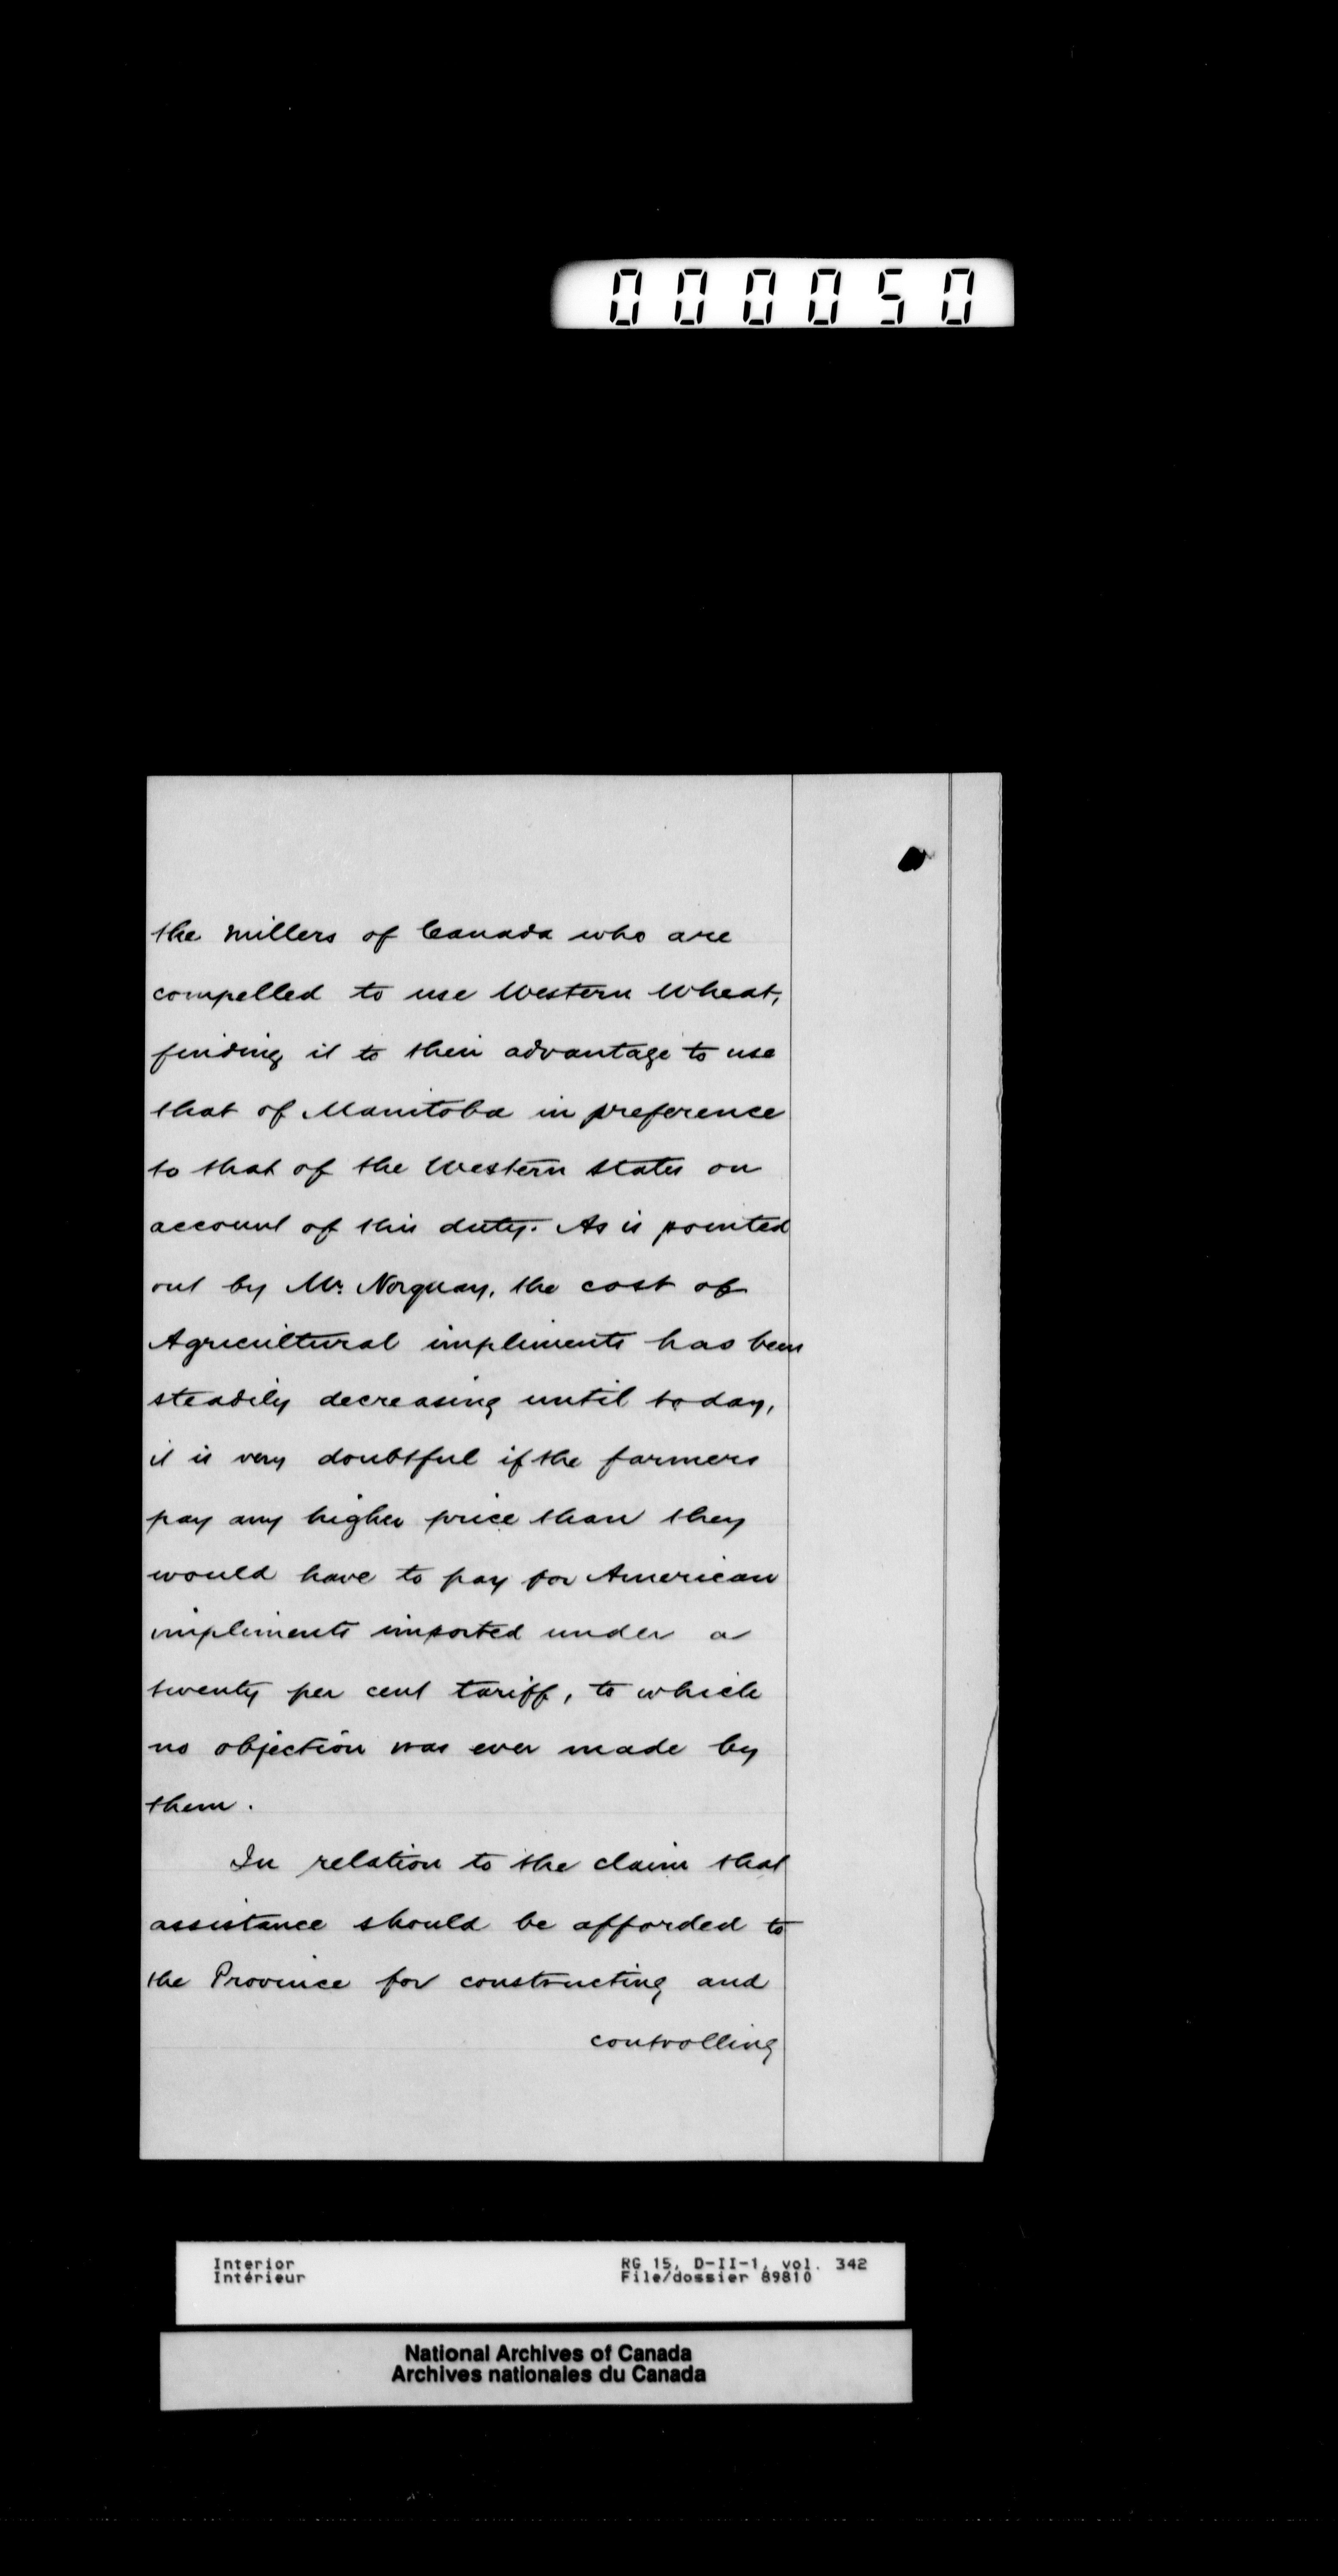 000050
the millers of Canada who are
compelled to use Western Wheat,
finding it to their advantage to use
that of Manitoba in preference
to that of the Western States on
account of this duty. As is pointed
out by Mr. Norquay, the cost of
Agricultural impliments has been
steadily decreasing until today,
it is very doubtful if the farmers
pay any higher price than they
would have to pay for American
impliments imported under a
twenty per cent tariff, to which
no objection was ever made by
them.
In relation to the claim that
assistance should be afforded to
the Province for constructing and
controlling
Interior RG 15, D-II-1, vol. 342
Intérieur File/dossier 89810
National Archives of Canada
Archives nationales du Canada